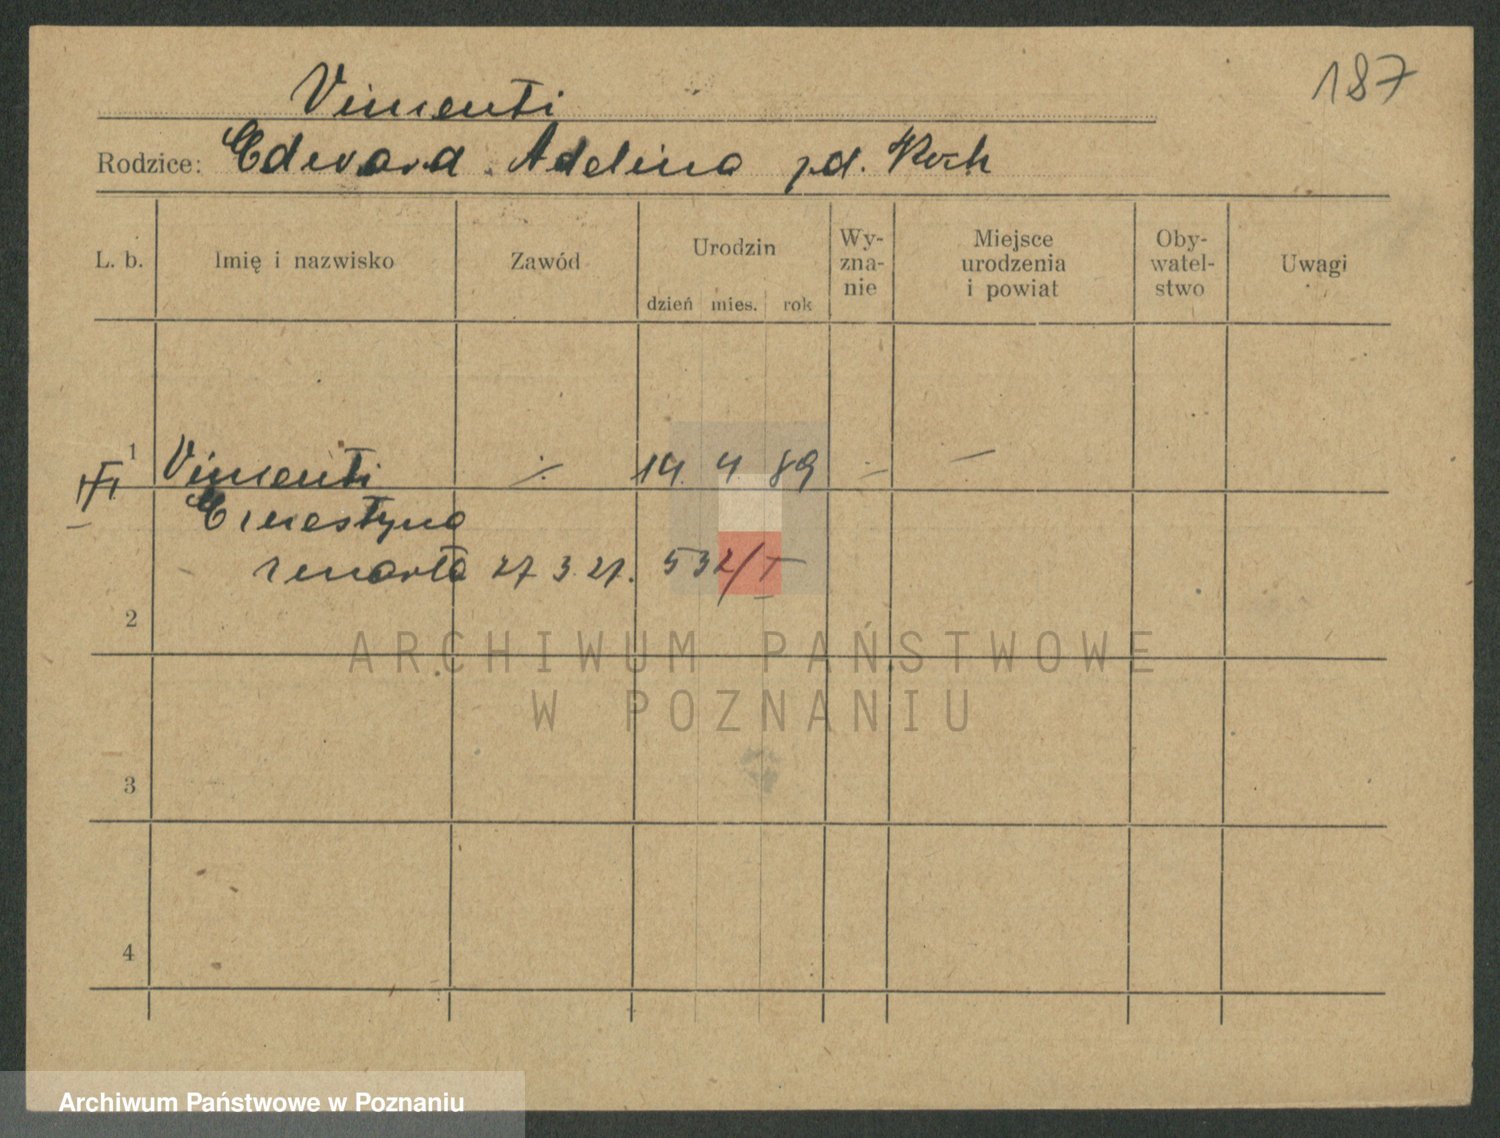 187
Vimenti
Rodzice: Edward Adelina pd. Koch
L. b. Imię i nazwisko Zawód Urodzin dzień mies. rok Wy-zna-nie Miejsce urodzenia i powiat Oby-watel-stwo Uwagi
1 Vimenti ÷ 14. 4. 89 — —
Ernestyna
zmarła 27 3. 27. 532/I
2
3
4
ARCHIWUM PAŃSTWOWE
W POZNANIU
Archiwum Państwowe w Poznaniu